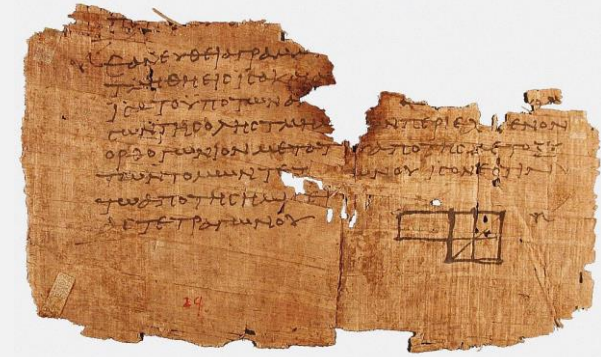 ΕΑΝ ΕΥΘΕΙΑ ΓΡΑΜ
ΤΜΗΘΗ ΕΙϹ ΙϹΑ ΚΑΙ
ΙϹΑ ΤΟ ΥΠΟ ΤΩΝ Α
ϹΩΝ ΤΗϹ ΟΛΗϹ ΤΜΗ ΩΝ ΠΕΡΙΕΧΟΜΕΝΟΝ
ΟΡΘΟΓΩΝΙΟΝ ΜΕΤΑ ΤΟΥ ΑΠΟ ΤΗϹ ΜΕΤΟΞΥ
ΤΩΝ ΤΟΜΩΝ ΤΕ ΩΝΟΥ ΙϹΟΝ ΕϹΤΙΝ
ΤΩ ΑΠΟ ΤΗϹ ΗΜΙϹΕΙΑϹ
ΤΕΤΡΑΓΩΝΟΥ
29